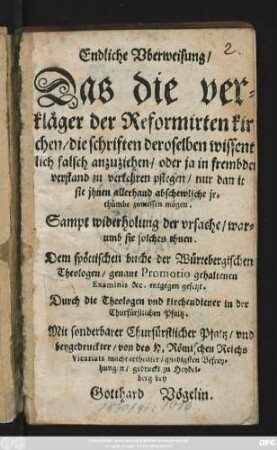 2.
Endliche Vberweisung/
Das die ver-
kläger der Reformirten kir
chen/die schriften deroselben wissent
lich falsch anzuziehen/ oder ja in frembden
verstand zu verkehren pflegen/ nur damit
sie jhnen allerhand abschewliche jr-
thümbe zumessen mögen.
Sampt widerholung der vrsache/war-
umb sie solches thuen.
Dem spöttischen buche der Würtebergischen
Theologen/ genant Promotio gehaltenen
Examinis &c. entgegen gesetzt.
Durch die Theologen vnd kirchendiener in der
Churfürstlichen Pfaltz.
Mit sonderbarer Churfürstlicher Pfaltz/ vnd
beygedruckter/ von des H. Römischen Reichs
Vicariats macht ertheilter/ gnedigsten Befrey-
hungen/ gedruckt zu Heydel-
berg bey
Gotthard Vögelin.